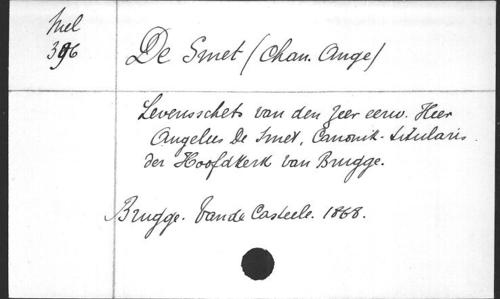 Mel
396
De Smet (Chan. Ange)
Levensschets van den zeer eerw. Heer
Angelus De Smet, Canonik-titularis
der Hoofdkerk van Brugge.
Brugge. Vande Casteele. 1868.